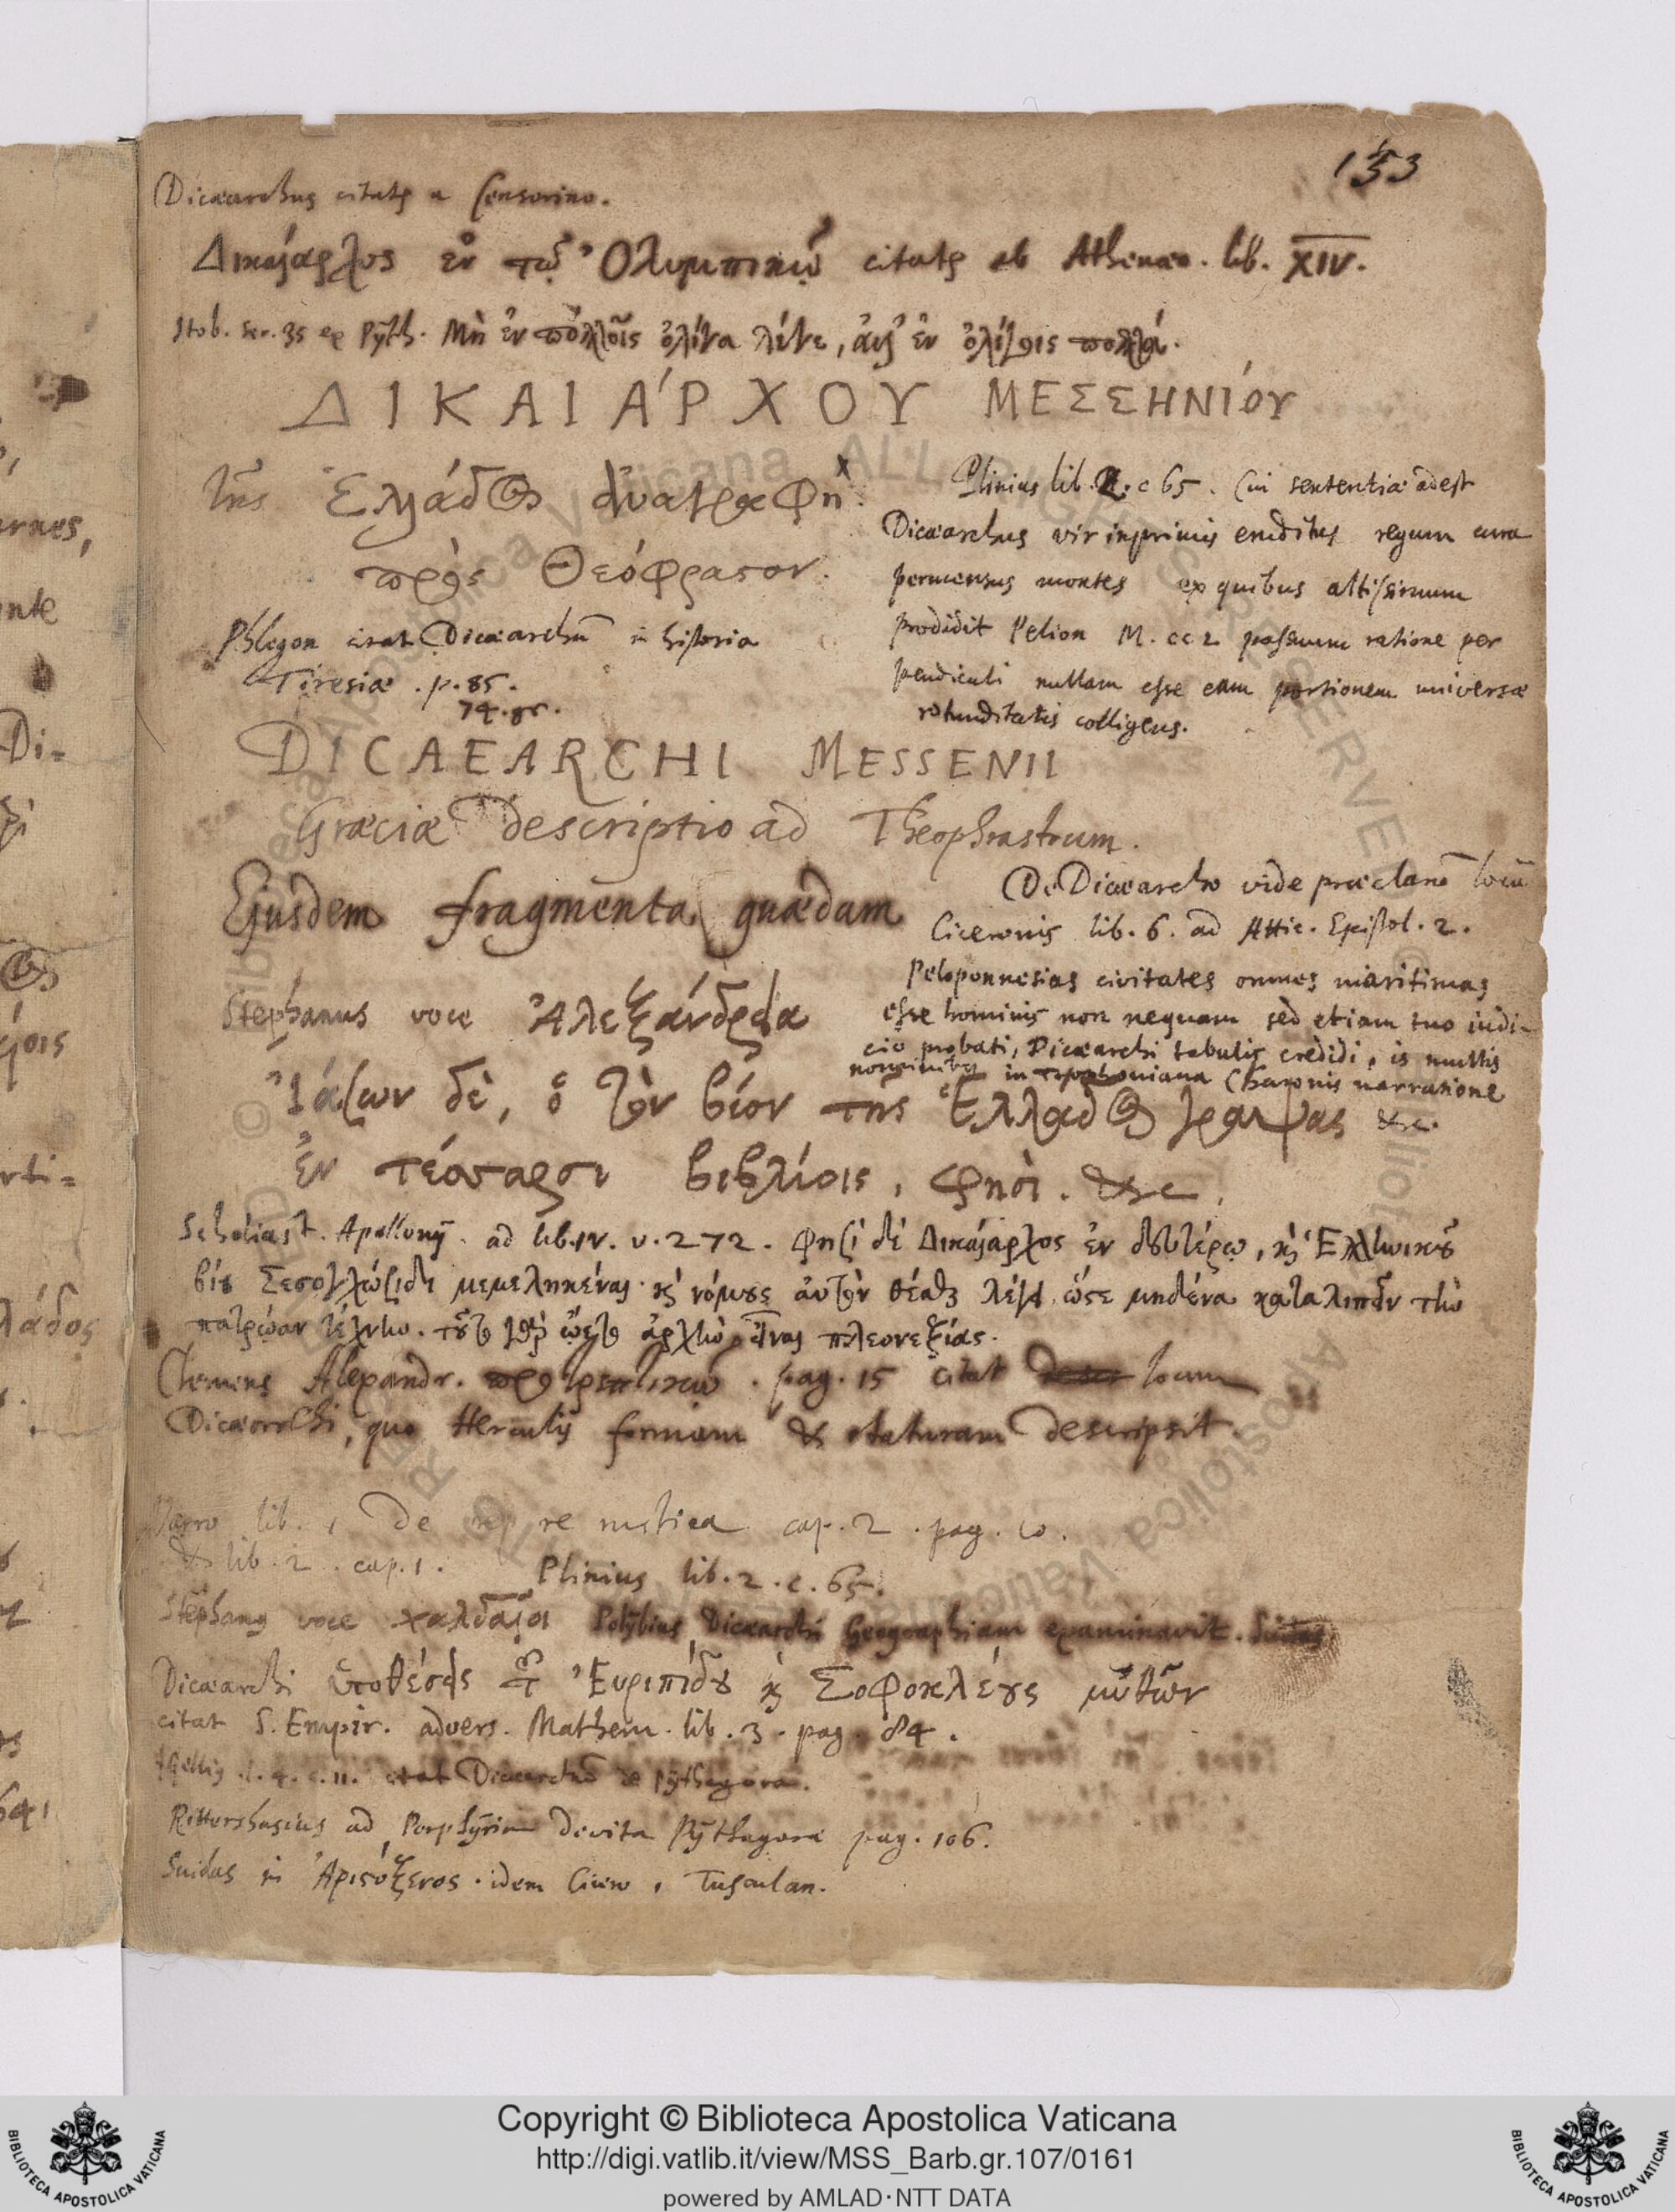 153
Dicæarchus citatꝫ a Censorino.
Δικαίαρχος ἐν τῷ Ὀλυμπικῷ citatꝫ ab Athenæo. lib. XIV.
Stob. ser. 35 ex Pyth. Μὴ ἐν πολλοῖς ὀλίγα λέγε, ἀλλ' ἐν ὀλίγοις πολλά.
ΔΙΚΑΙΆΡΧΟΥ ΜΕΣΣΗΝΊΟΥ
τῆς Ἑλλάδος ἀναγραφὴ x
πρὸς Θεόφραστον.
Plinius lib. 2. c 65. Cui sententiæ adest
Dicæarchus vir inprimis eruditus regum cura
permensus montes ex quibus altissimum
prodidit Pelion M. cc2 passuum ratione per
pendiculi nullam esse eam portionem universæ
rotunditatis colligens.
Phlegon citat Dicæarchũ in historia
Tiresiæ. p. 85.
74. gr.
DICAEARCHI MESSENII
Græciæ descriptio ad Theophrastrum.
Ejusdem fragmenta quædam
De Dicæarcho vide præclarũ locũ
Ciceronis lib. 6. ad Attic. Epistol. 2.
Peloponnesias civitates omnes maritimas
esse hominis non nequam sed etiam tuo judi-
cio probati, Dicæarchi tabulis credidi, is multis
nominibus in trophoniana Chæronis narratione
Stephanus voce Ἀλεξάνδρεια
Ἰάσων δὲ, ὁ τὸν βίον τῆς Ἑλλάδος γράψας &c.
ἐν τέσσαρσι βιβλίοις, φησὶ. &c.
Scholiast. Apollonij. ad lib. IV. v. 272. φησὶ δὲ Δικαίαρχος ἐν δευτέρῳ, καὶ Ἑλληνικοῦ
βίου Σεσογχώσιδι μεμεληκέναι. καὶ νόμους αὐτὸν θέσθαι λέγει ὥστε μηδένα καταλιπεῖν τὴν
πατρῴαν τέχνην. τοῦτο γὰρ ᾤετο ἀρχὴν εἶναι πλεονεξίας.
Clemens Alexandr. προτρεπτικῷ. pag. 15 citat locum
Dicæarchi, quo Herculis formam & staturam descripsit.
Varro lib. 1 De re rustica cap. 2. pag. 10.
& lib. 2. cap. 1. Plinius lib. 2. c. 65.
Stephanꝰ voce χαλδαῖοι Polybius Dicæarchi Geographiam examinavit.
Dicæarchi ὑποθέσεις τ̃ Εὐριπίδου καὶ Σοφοκλέους μύθων
citat S. Empir. advers. Mathem. lib. 3. pag. 84.
AGellius l. 4. c. 11. citat Dicæarchũ de Pythagora.
Rittershusius ad Porphyrium de vita Pythagoræ pag. 106.
Suidas in Ἀριστόξενος. idem Cicero 1 Tusculan.
Copyright © Biblioteca Apostolica Vaticana
http://digi.vatlib.it/view/MSS_Barb.gr.107/0161
powered by AMLAD·NTT DATA
BIBLIOTECA APOSTOLICA VATICANA
BIBLIOTECA APOSTOLICA VATICANA